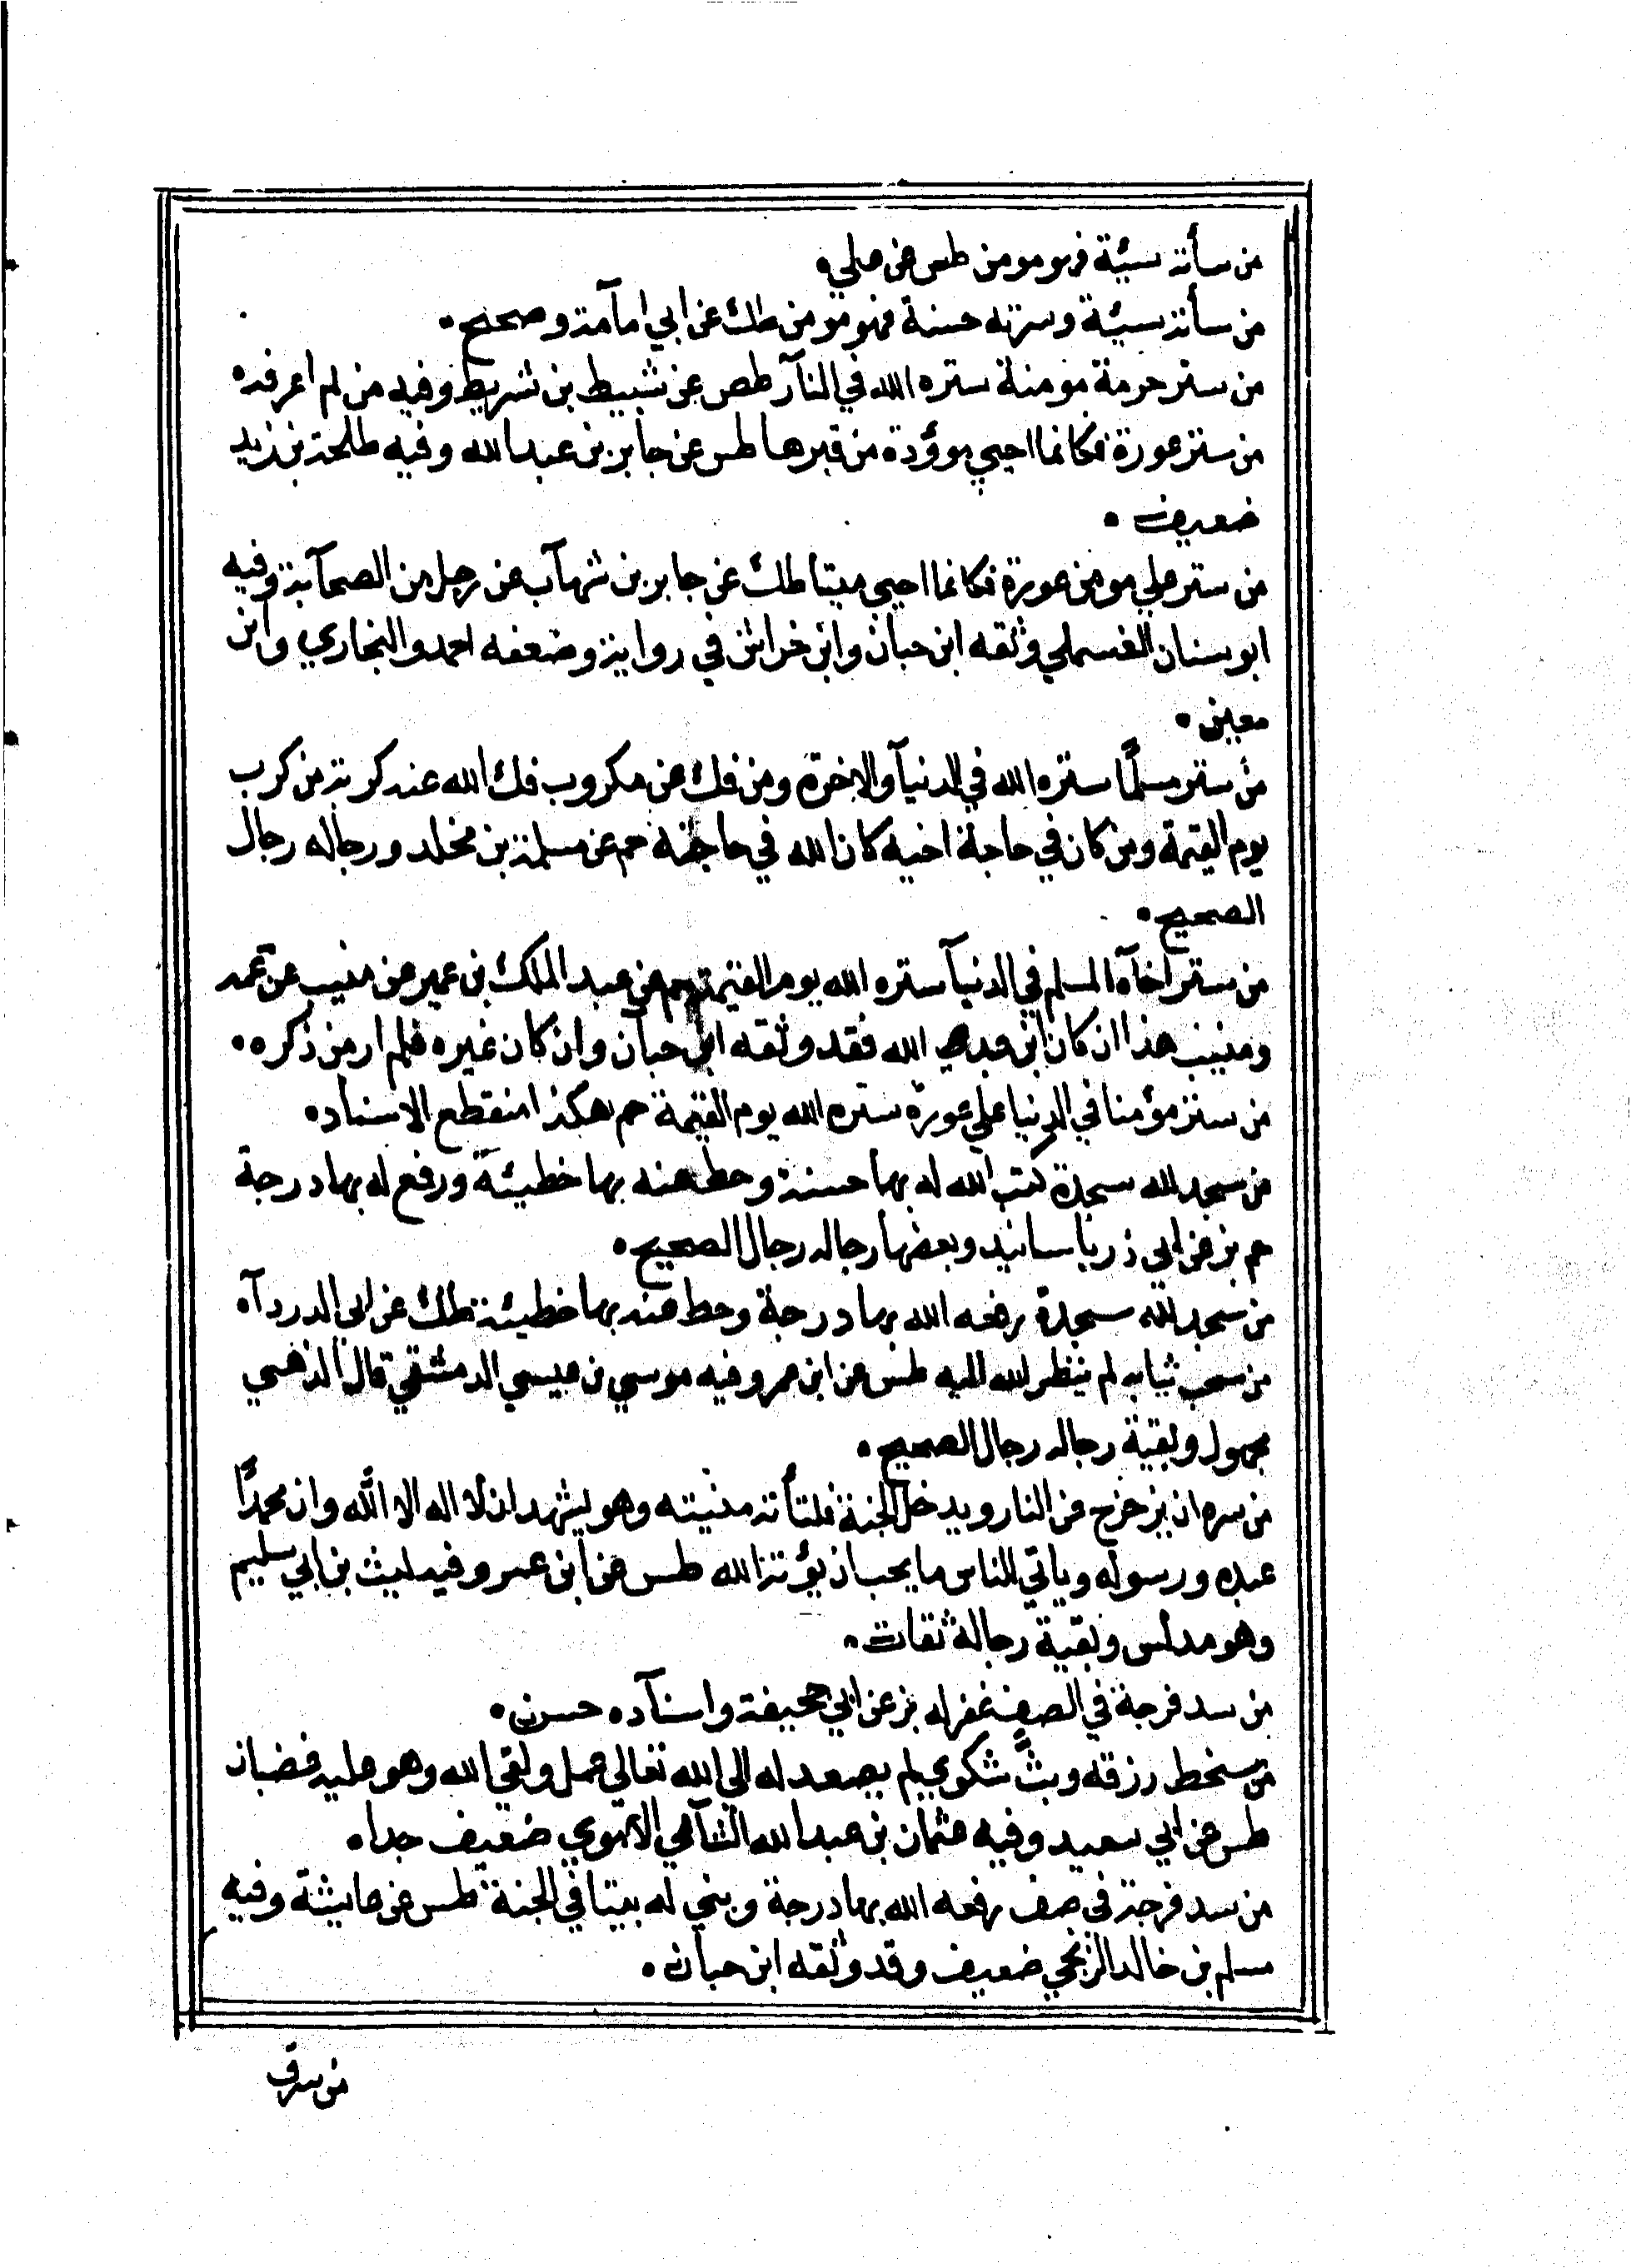 من سأته سيئة فهو مومن طس عن علي.
من سأته سيئة وسرته حسنة فهو مومن طك عن ابي امآمة وصحح.
من ستر حرمة مومنة ستره الله في النآر طص عن شبيط بن شريط وفيه من لم اعرفه.
من ستر عورة فكانما احيي موؤدة من قبرها طس عن جابر بن عبد الله وفيه طلحة بن زيد
ضعيف.
من ستر علي مومن عورة فكانما احيي ميتا طك عن جابر بن شهآب عن رجل من الصحآبة وفيه
ابو سنان القسملي وثقه ابن حبان وابن خراش في رواية وضعفه احمد والبخاري وابن
معين.
من ستر مسلمًا ستره الله في الدنيآ والاخرة ومن فك عن مكروب فك الله عنه كربة من كرب
يوم القيمة ومن كان في حاجة اخيه كان الله في حاجته حم عن مسلمة بن مخلد ورجاله رجال
الصحيح.
من ستر اخآه المسلم في الدنيآ ستره الله يوم القيمة حم عن عبد الملك بن عمير عن منيب عن عمه
ومنيب هذا ان كان ابن عبد الله فقد وثقه ابن حبان وان كان غيره فلم ار من ذكره.
من ستر مؤمنا في الدنيا علي عورة ستره الله يوم القيمة حم هكذا منقطع الاسناد.
من سجد لله سجدة كتب الله له بها حسنة وحط عنه بها خطيئة ورفع له بها درجة
حم بز عن ابي ذر باسانيد وبعضها رجاله رجال الصحيح.
من سجد لله سجدة رفعه الله بها درجة وحط عنه بها خطيئة طك عن ابي الدردآه
من سحب ثيابه لم ينظر الله اليه طس عن ابن عمر وفيه موسي بن عيسي الدمشقي قال الذهبي
مجهول وبقية رجاله رجال الصحيح.
من سره ان يزحزح عن النار ويدخل الجنة فلتأته منيته وهو يشهد ان لا اله الا الله وان محمدًا
عبده ورسوله وياتي الناس ما يحب ان يؤتز الله طس عن ابن عمرو وفيه ليث بن ابي سليم
وهو مدلس وبقية رجاله ثقات.
من سد فرجة في الصف غفر له بز عن ابي جحيفة واسنآده حسن.
من سخط رزقه وبث شكوي لم يصعد له الي الله تعالي عمل ولقي الله وهو عليه غضبان
طس عن ابي سعيد وفيه عثمان بن عبد الله الشآمي الاموي ضعيف جدا.
من سد فرجة في صف رفعه الله بها درجة وبني له بيتا في الجنة طس عن عايشة وفيه
مسلم بن خالد الزنجي ضعيف وقد وثقه ابن حبان.
من سرق